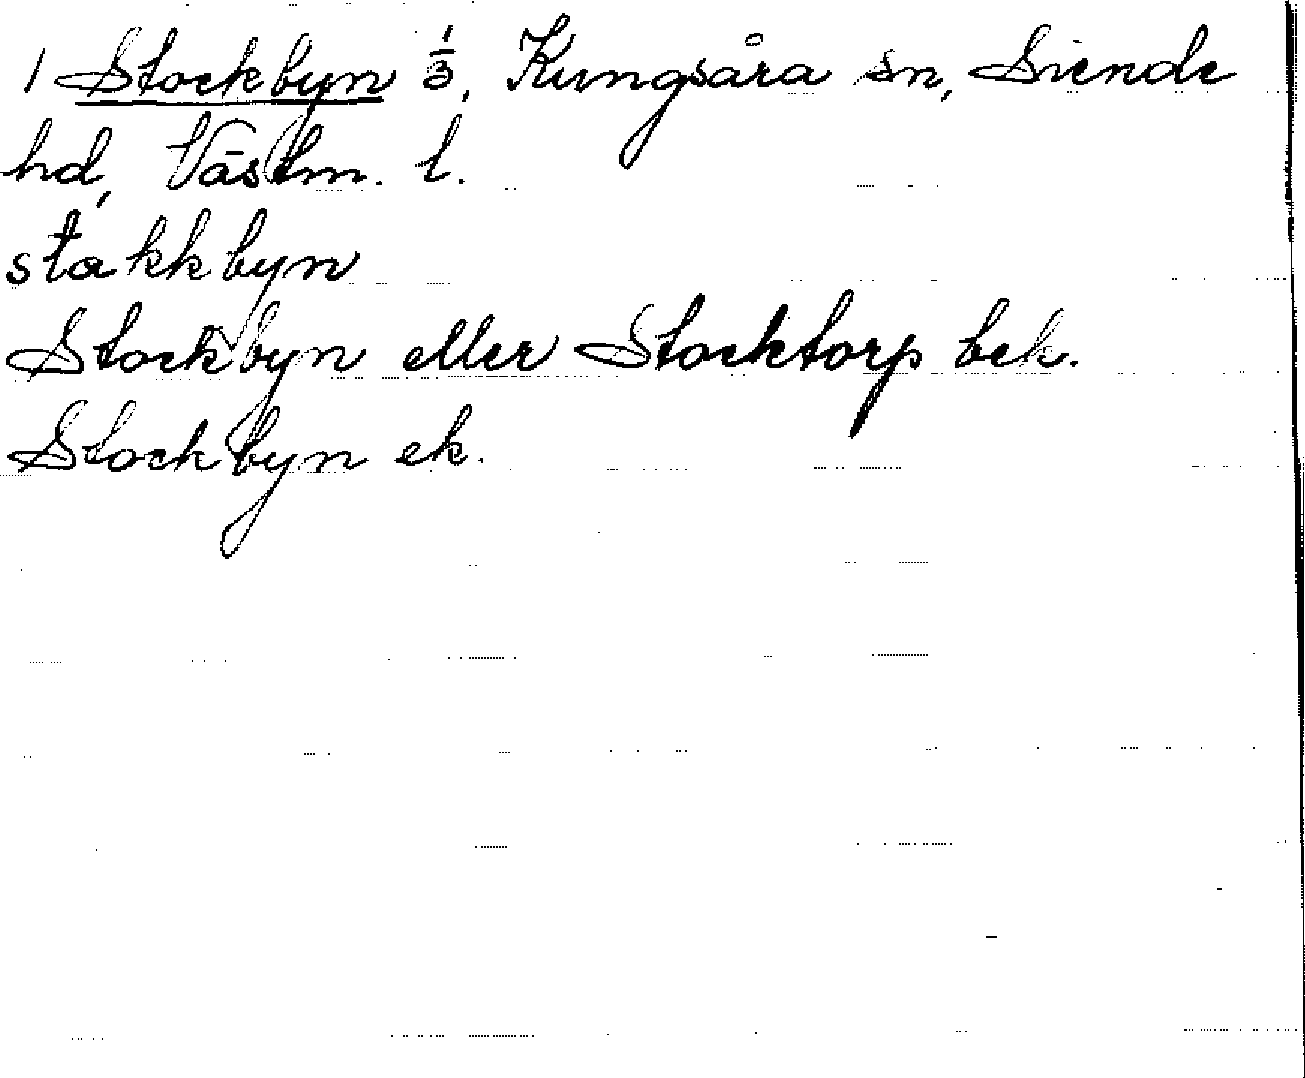 1 Stockbyn 1/3, Kungsåra sn, Siende
hd, Västm. l.
stakkbyn
Stockbyn eller Stocktorp bek.
Stockbyn ek.